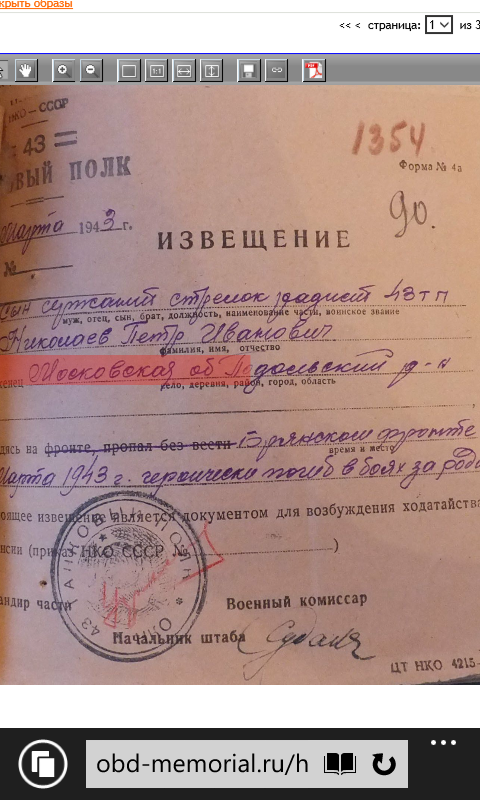 крыть образы
<< < страница: 1 из 3
НКО–СССР
43
ОВЫЙ ПОЛК
1354
Форма № 4а
90.
Марта 1943 г.
ИЗВЕЩЕНИЕ
№
сын сержант стрелок радист 43 тп
муж, отец, сын, брат, должность, наименование части, воинское звание
Николаев Петр Иванович
фамилия, имя, отчество
Московская об Подольский р-н
село, деревня, район, город, область
дясь на фронте, пропал без вести Брянском фронте
время и место
Марта 1943 г. героически погиб в боях за роди
оящее извещение является документом для возбуждения ходатайства
нсии (приказ НКО СССР № )
43 ТАНКОВЫЙ ПОЛК
андир части Военный комиссар
Начальник штаба
ЦТ НКО 4215-
obd-memorial.ru/h